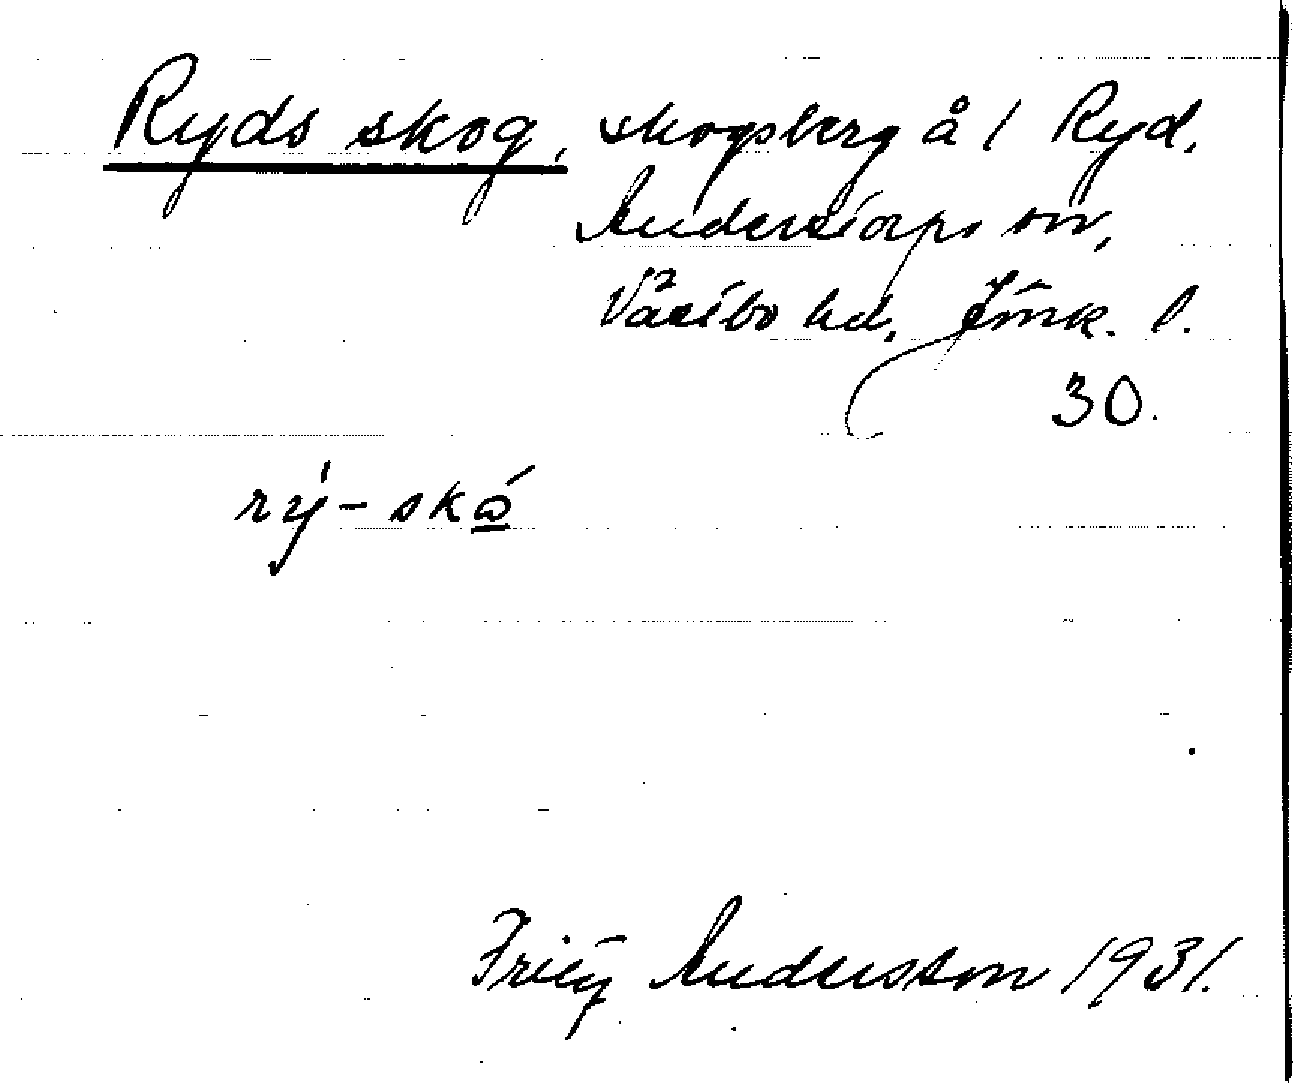 Ryds skog, skogsberg å 1 Ryd.
Anderstorps sn,
Västbo hd, Jönk. l.
30.
rý-skó̲
Fritz Andersson 1931.